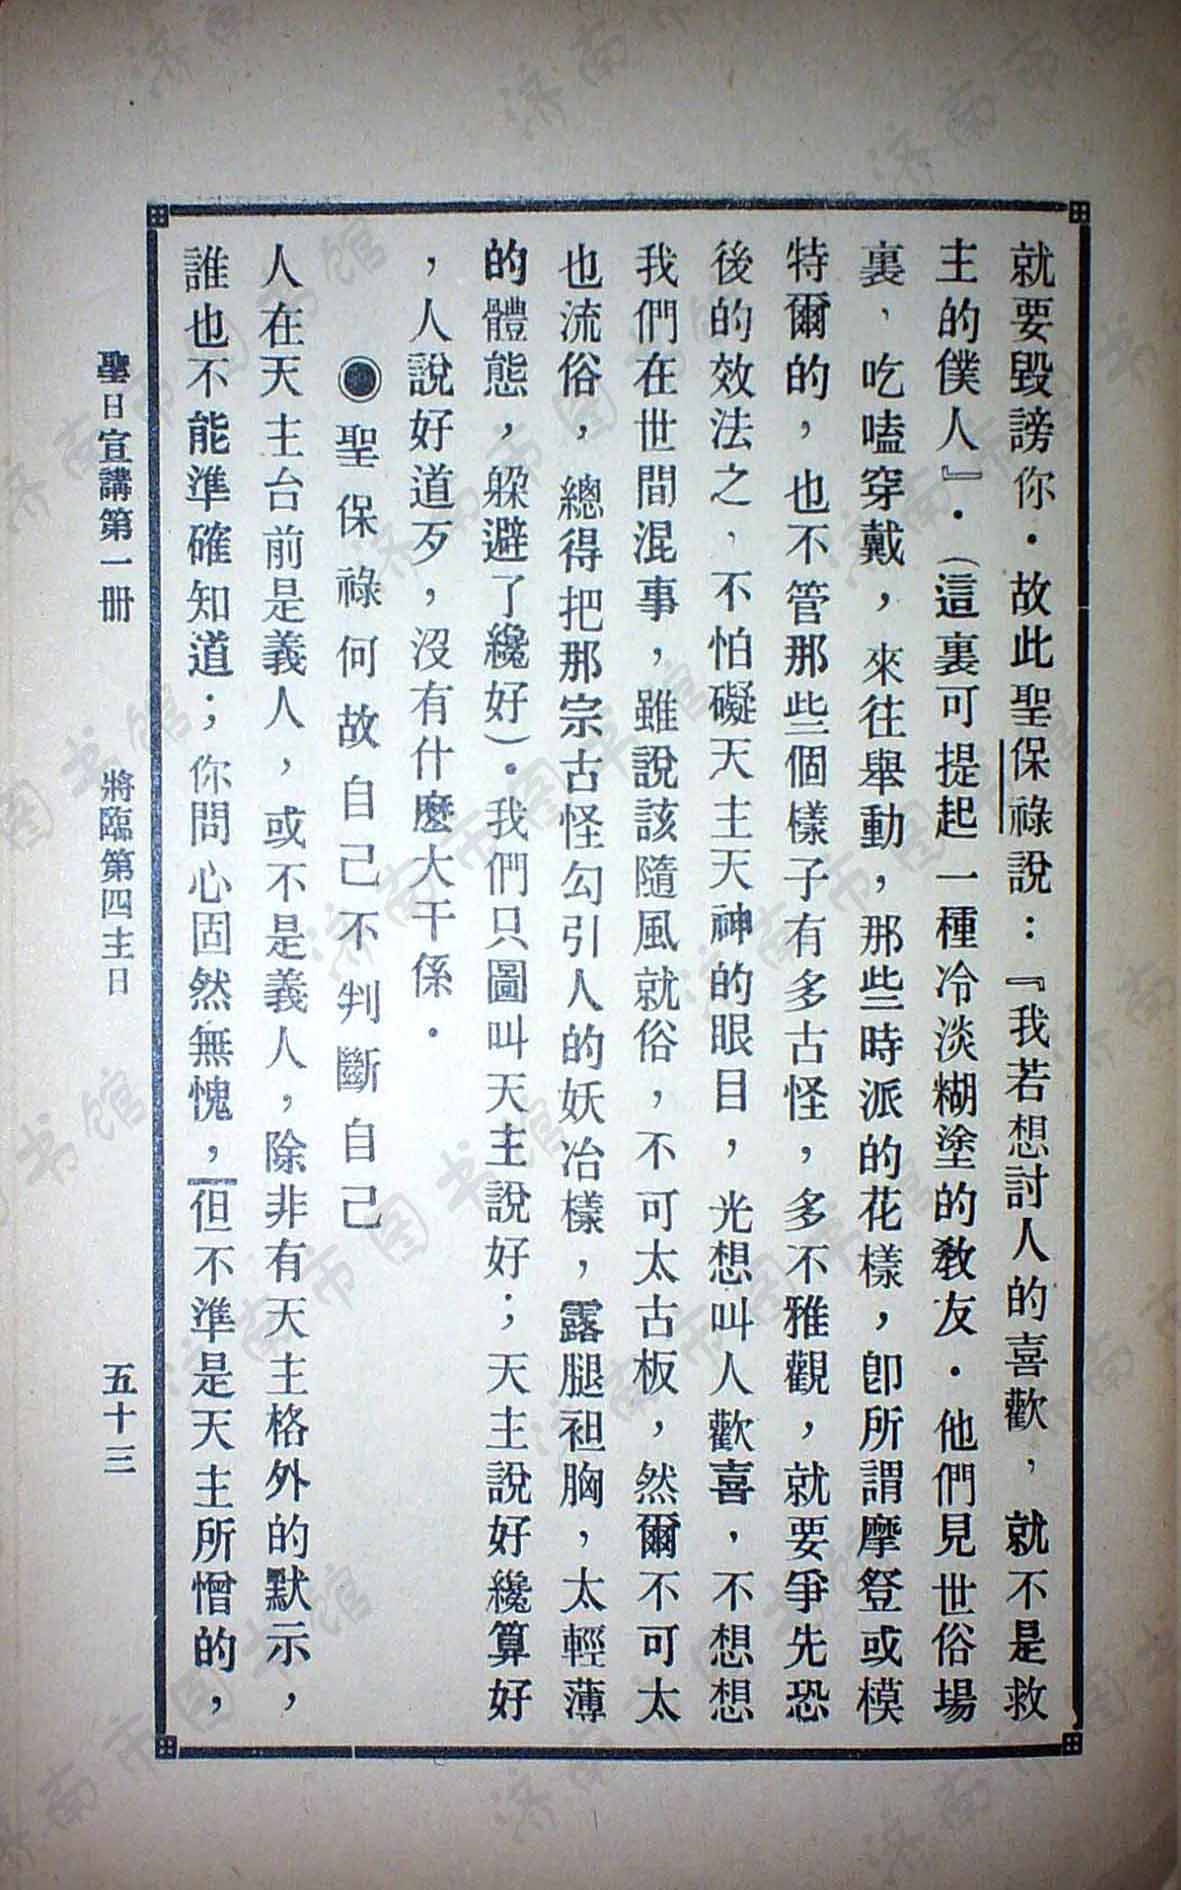 就要毀謗你．故此聖保祿說：『我若想討人的喜歡，就不是救
主的僕人』．（這裏可提起一種冷淡糊塗的教友．他們見世俗場
裏，吃嗑穿戴，來往舉動，那些時派的花樣，卽所謂摩登或模
特爾的，也不管那些個樣子有多古怪，多不雅觀，就要爭先恐
後的效法之，不怕礙天主天神的眼目，光想叫人歡喜，不想想
我們在世間混事，雖說該隨風就俗，不可太古板，然爾不可太
也流俗，總得把那宗古怪勾引人的妖冶樣，露腿袒胸，太輕薄
的體態，躲避了纔好）．我們只圖叫天主說好；天主說好纔算好
，人說好道歹，沒有什麼大干係．
◉聖保祿何故自己不判斷自己
人在天主台前是義人，或不是義人，除非有天主格外的默示，
誰也不能準確知道；你問心固然無愧，但不準是天主所憎的，
聖日宣講第一册　將臨第四主日　五十三
济南市图书馆